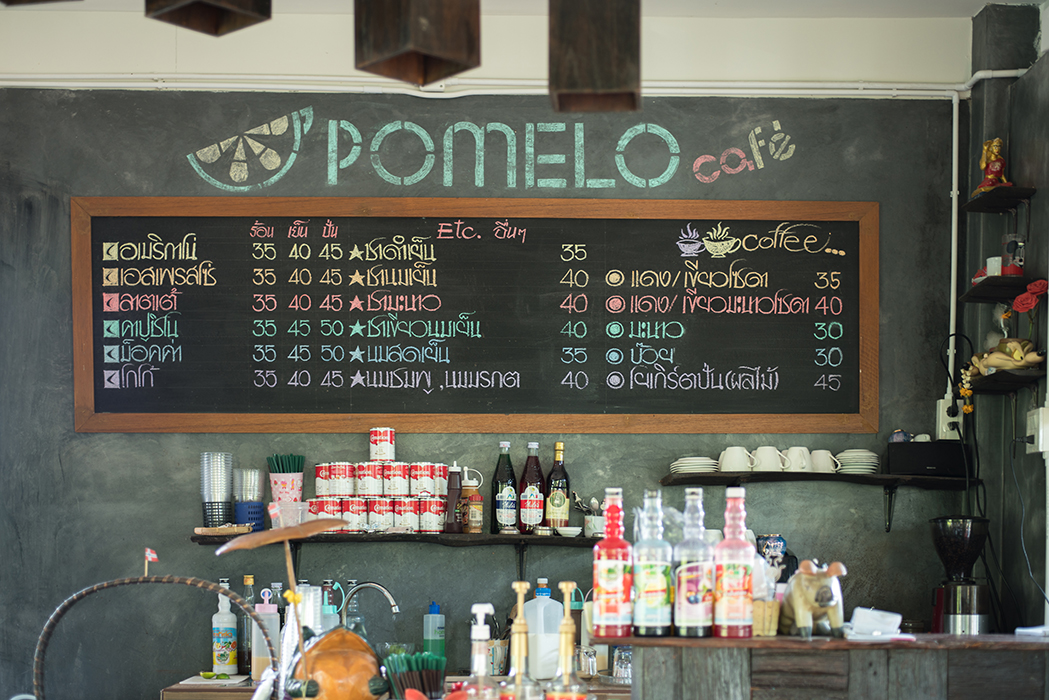 POMELO café
ร้อน เย็น ปั่น
อเมริกาโน่ 35 40 45
เอสเพรสโซ่ 35 40 45
ลาตเต้ 35 40 45
คาปูชิโน 35 45 50
ม็อคค่า 35 45 50
โกโก้ 35 40 45
Etc. อื่นๆ
★ชาดำเย็น 35
★ชานมเย็น 40
★ชามะนาว 40
★ชาเขียวนมเย็น 40
★นมสดเย็น 35
★นมชมพู , นมมรกต 40
coffee...
แดง/เขียวโซดา 35
แดง/เขียวมะนาวโซดา 40
มะนาว 30
บ๊วย 30
โยเกิร์ตปั่น(ผลไม้) 45